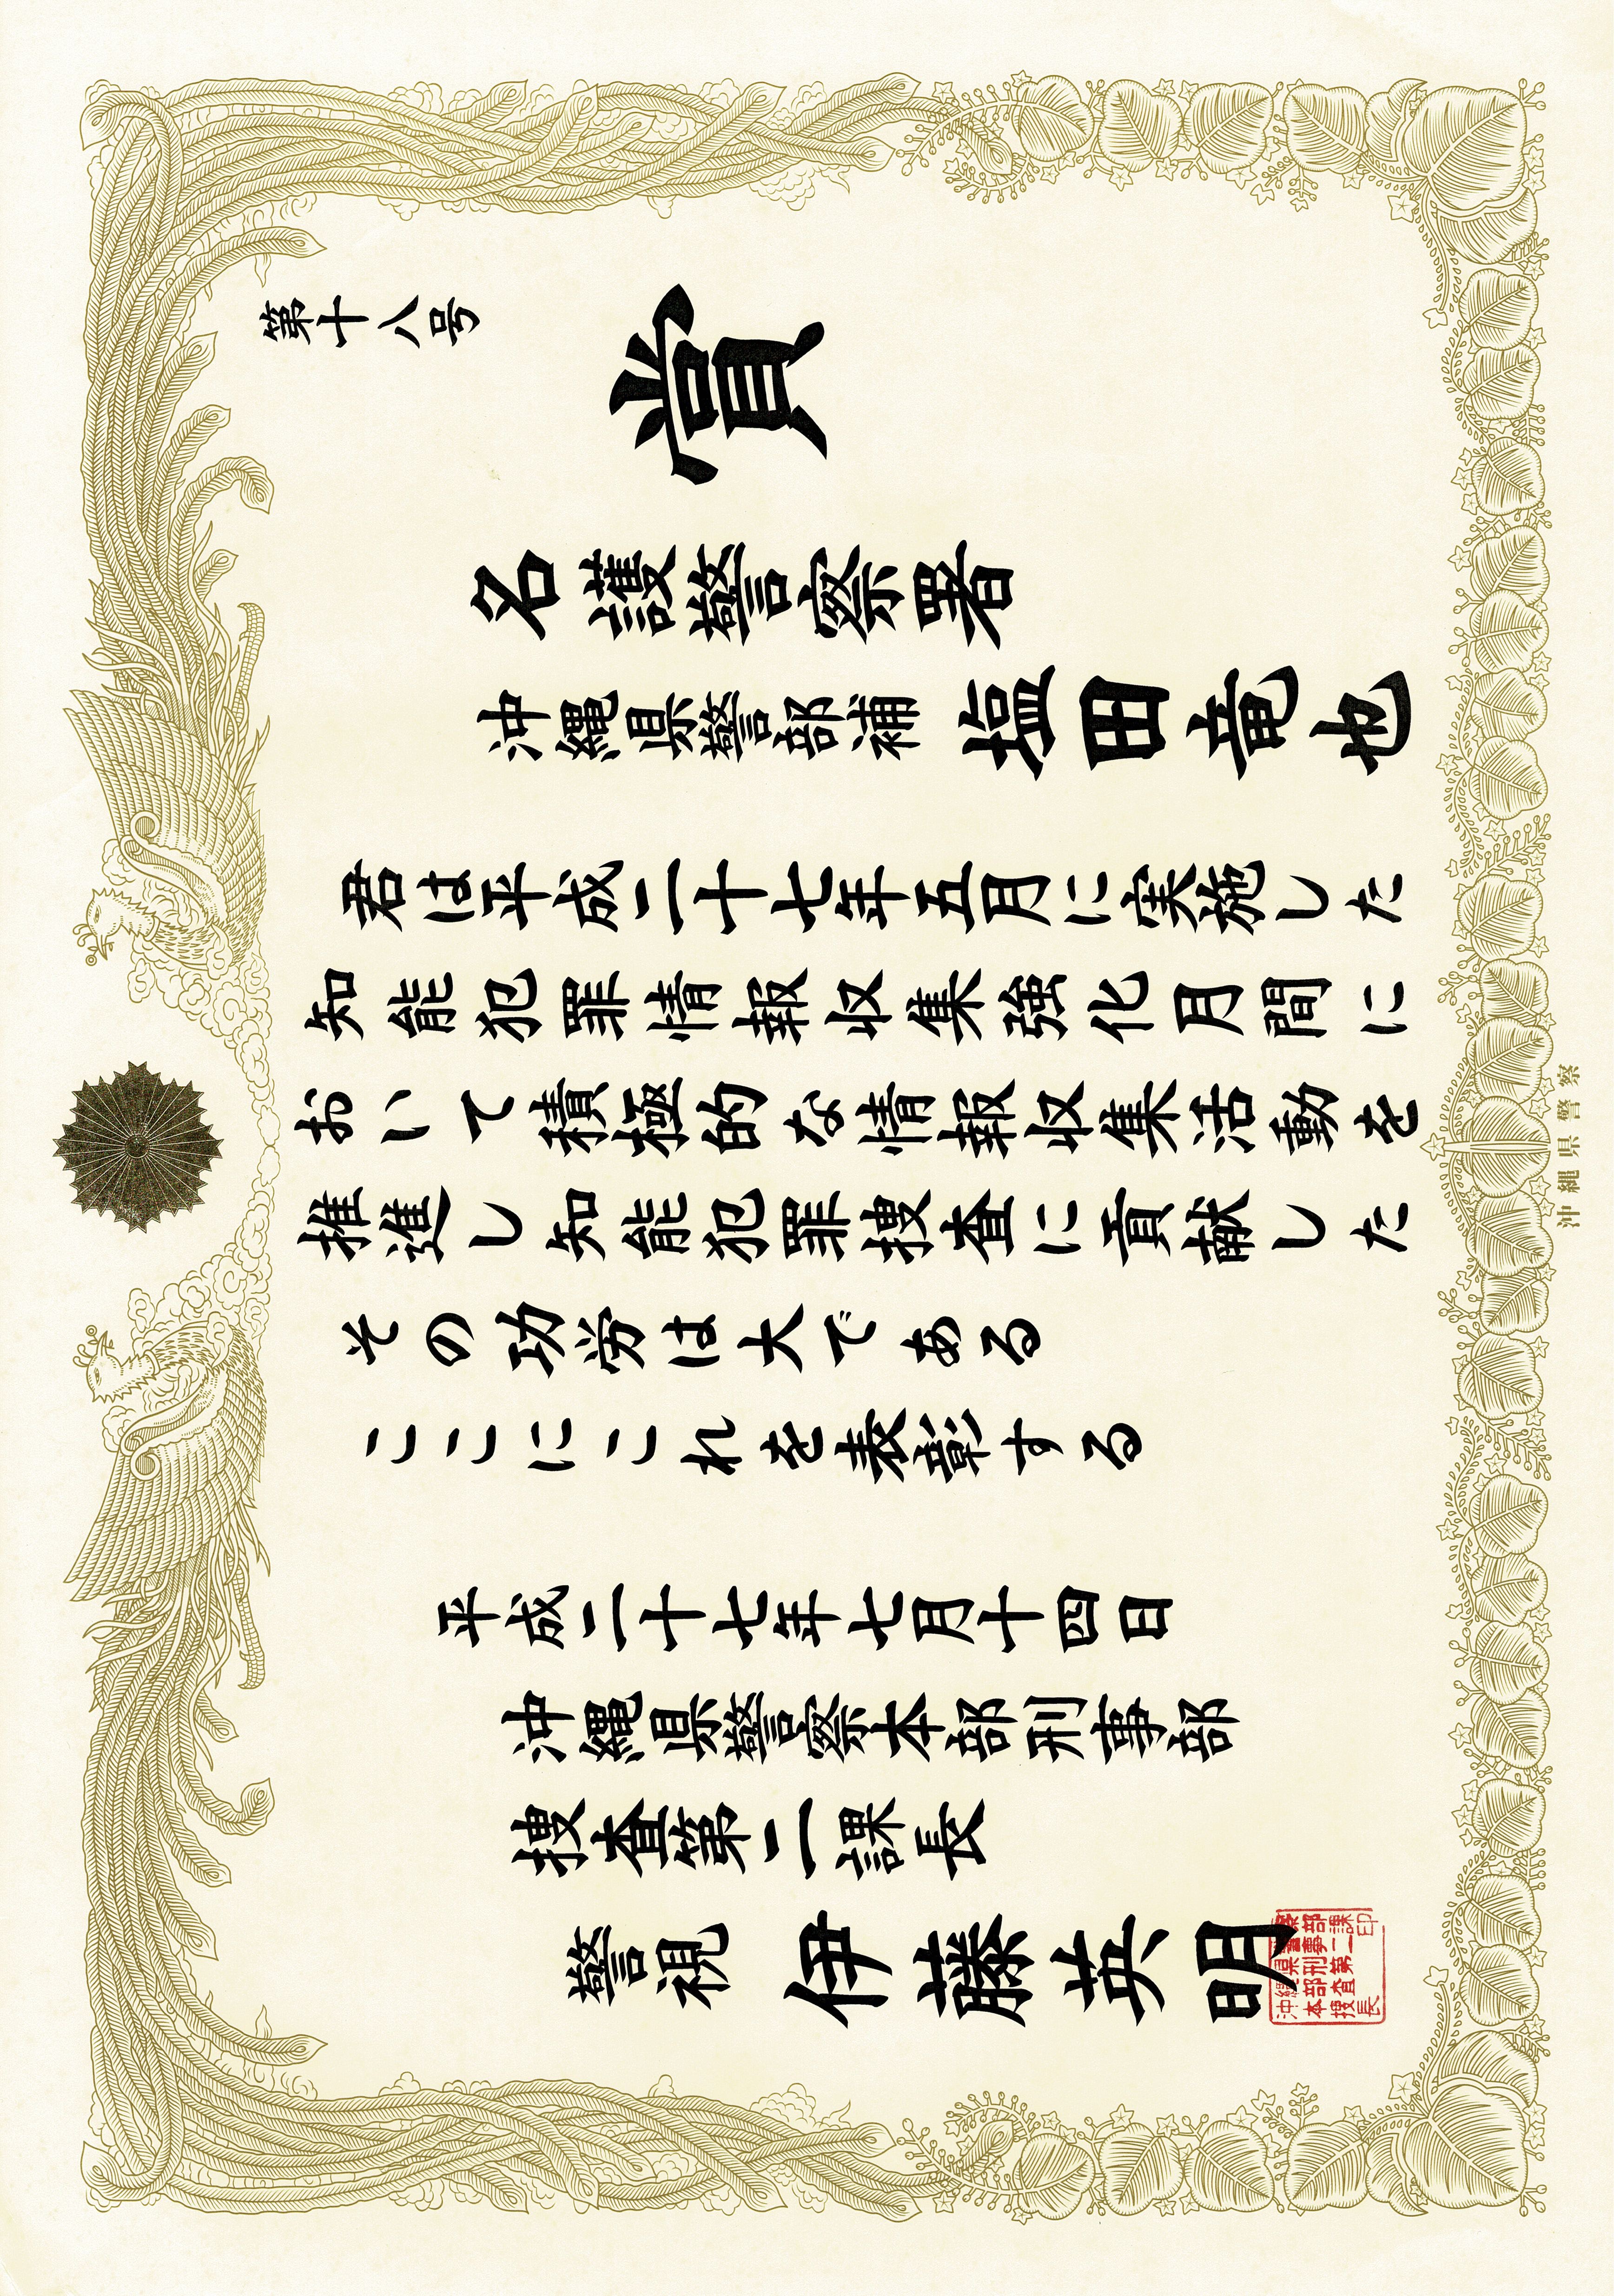 第十八号
賞
名護警察署
沖縄県警部補 塩田竜也
君は平成二十七年五月に実施した
知能犯罪情報収集強化月間に
おいて積極的な情報収集活動を
推進し知能犯罪捜査に貢献した
その功労は大である
ここにこれを表彰する
平成二十七年七月十四日
沖縄県警察本部刑事部
捜査第二課長
警視 伊藤英明
沖縄県警察
本部刑事部
捜査第二課
長印
沖縄県警察